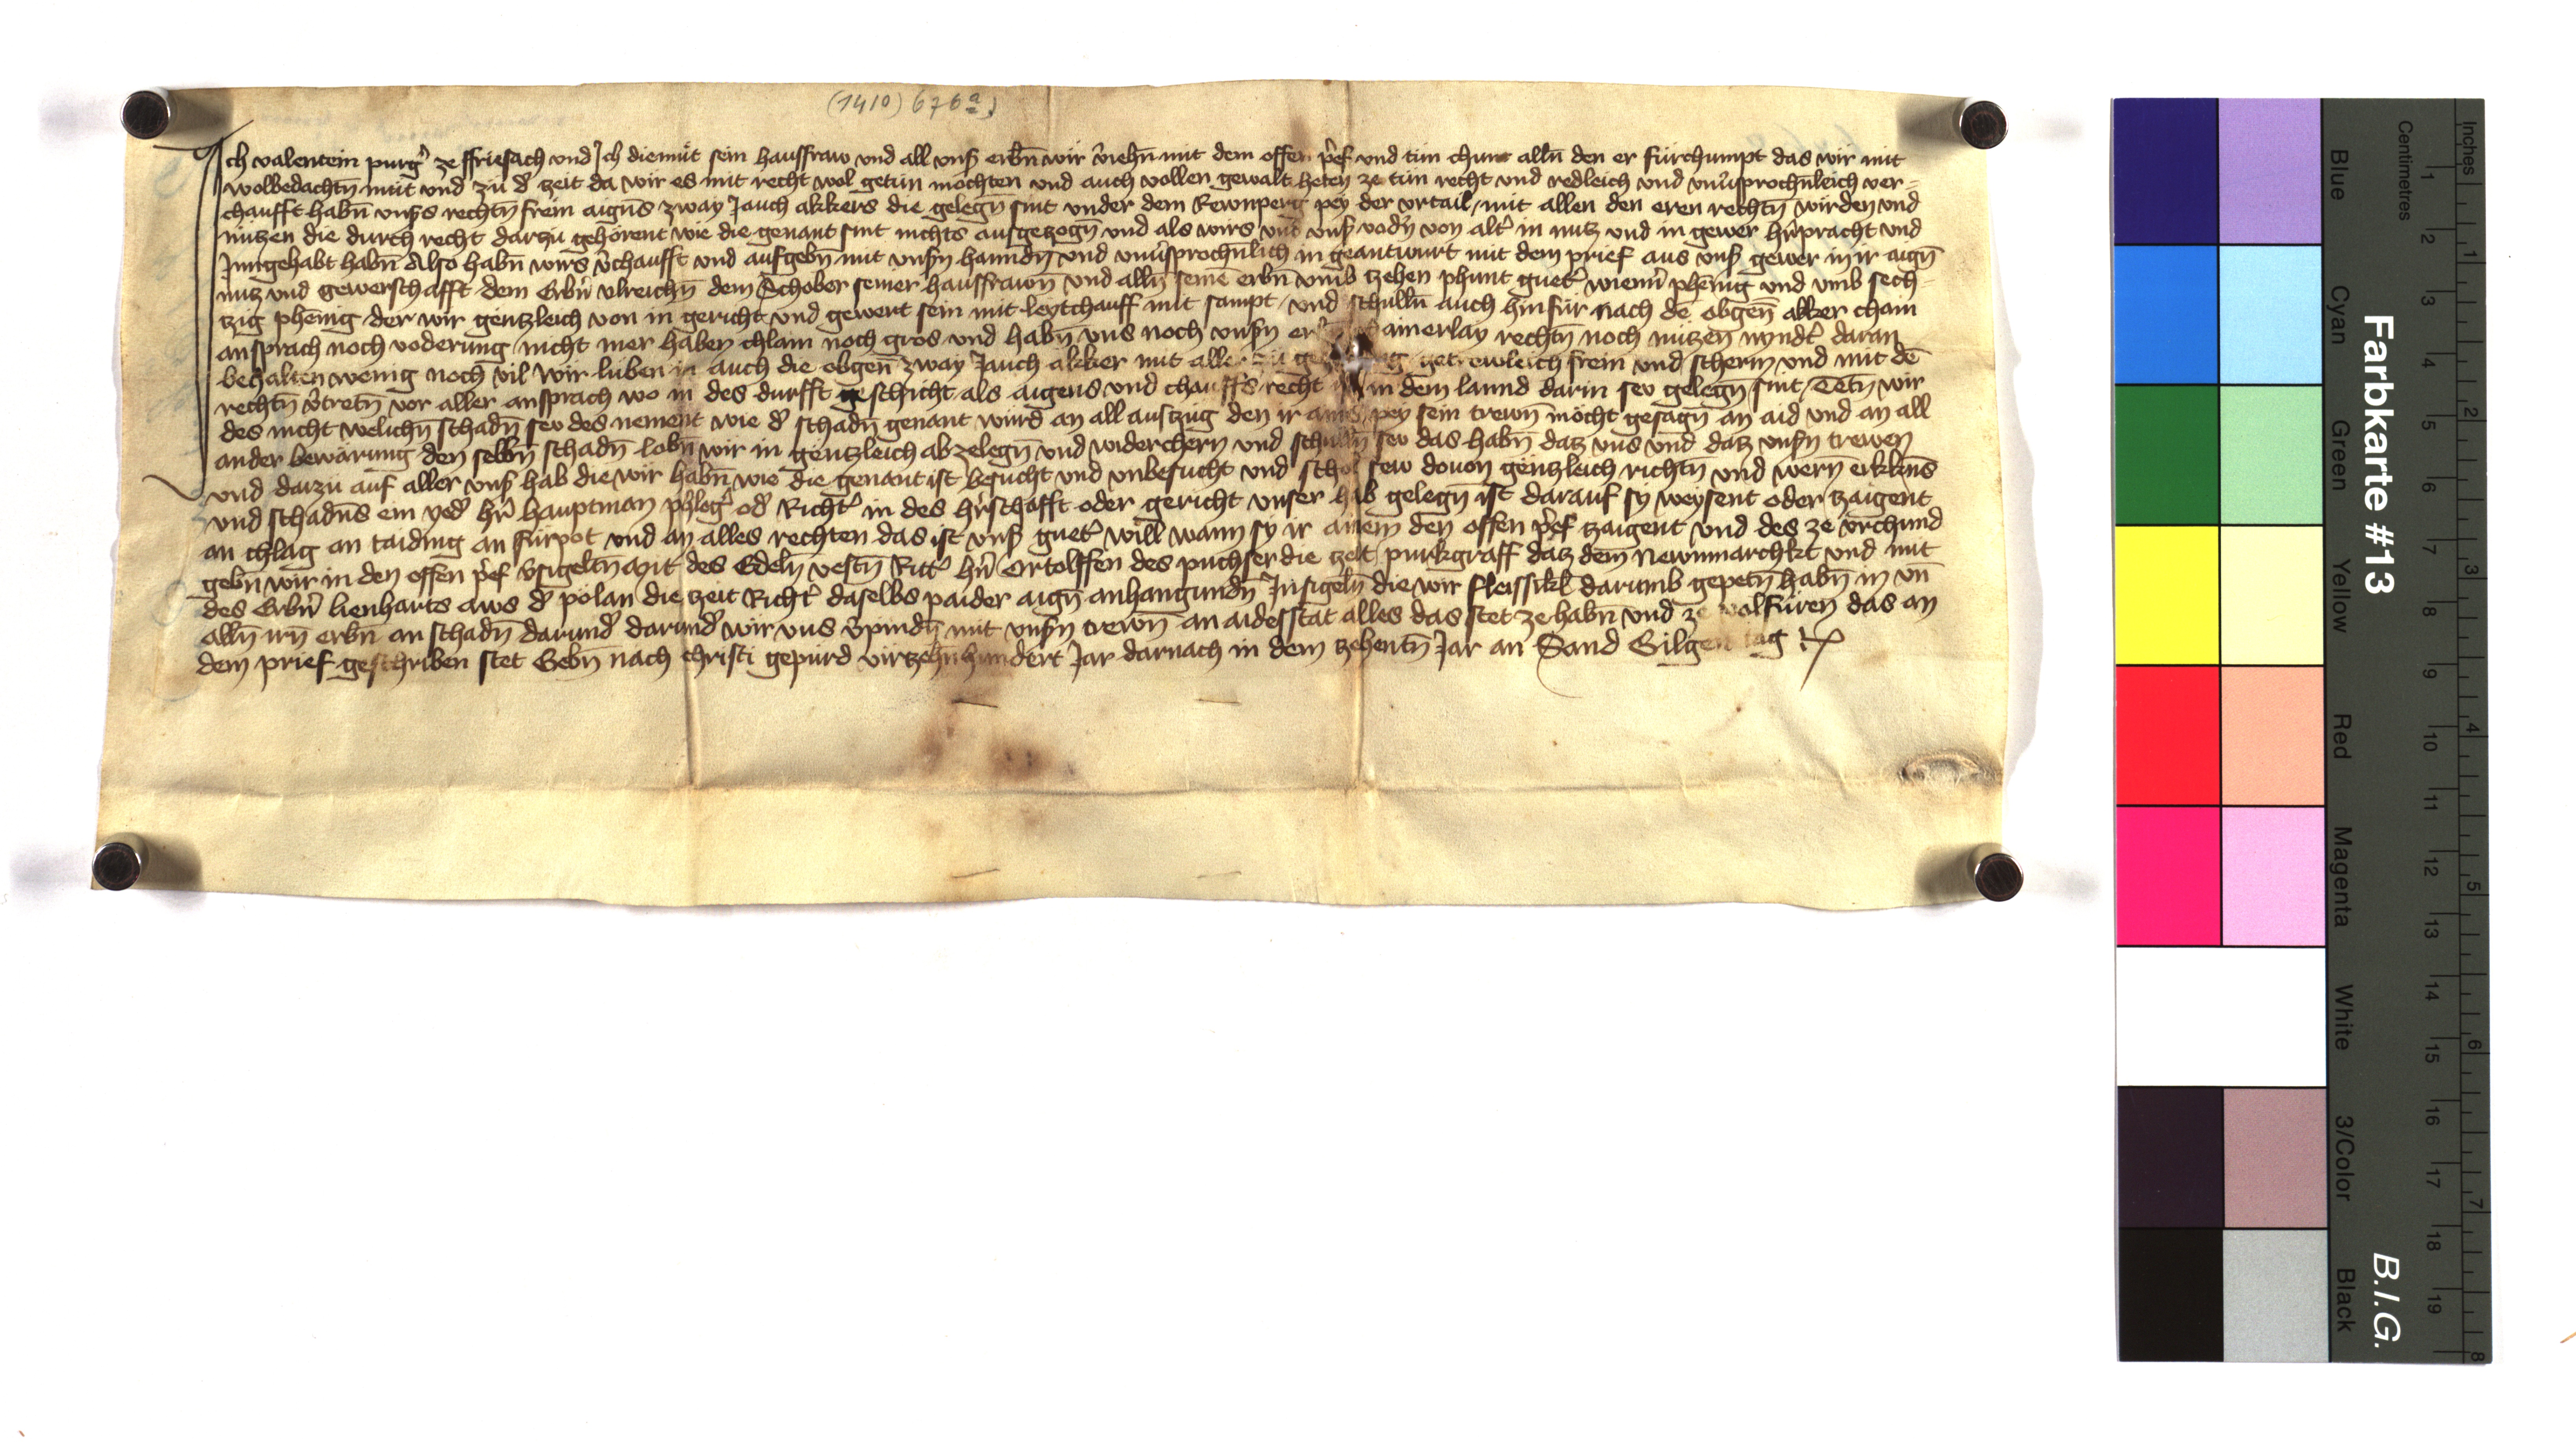 (1410) 676a)
Ich valentein purg̉ ze ffriesach und Ich diemüt sein hausfraw und all unß erbn̄ wir v̉iehn̄ mit dem offen pr̉ef und tün chunt alln̄ den er fürchumpt das wir mit
wolbedachtn̄ müt und zü d̉ zeit da wir es mit recht wol getün möchten und auch vollen gewalt heten ze tün recht und redleich und unu̓sprochn̄leich ver-
chaufft habn̄ unßs rechtn̄ frein aigns̄ zway Jauch akkers die gelegn̄ sint under dem Rewnperg pey der urtail / mit allen den eren rechtn̄ wirden und
nützen die durch recht darzü gehörent wie die genant sint nichts ausgezogn̄ und als wirs und unß vodn̉ von alt̉ in nutz und in gewer hr̉pracht und
Inngehabt habn̄ Also habn̄ wirs v̉chaufft und aufgebn̄ mit unßn hanndn̄ und unu̓sprochn̄lich in geantwurt mit dem prief aus unß gewer in ir aign̄
nutz und gewerschafft dem Erbn̉ ulreichn̄ dem Schober seiner hausfrawn̄ und alln̄ seinē erbn̄ umb tzehen phunt guet̉ wienn̉ phēnig und umb sech-
tzig phēnig der wir gentzleich von in gericht und gewert sein mit leytchauff mit sampt / und schulln̄ auch hinfür nach dē obgen̄ akker chain
ansprach noch voderung / nicht mer haben chlain noch gros und habn̄ uns noch unßn er ainerlay rechtn̄ noch nützen nyndt̉ daran
behalten wenig noch vil wir lüben in auch die obgen̄ zway Jauch akker mit aller zü getrewleich frein und scherm und mit dē
rechtn̄ v̉tretn̄ vor aller ansprach wo in des durfft geschicht als aigens und chauffs recht in dem lannd darin sew gelegn̄ sint / Tetn̄ wir
des nicht welichn̄ schadn̄ sew des nement wie d̉ schadn̄ genant wurd an all aufzüg den ir ains pey sein trewn̄ möcht gesagn̄ an aid und an all
ander bewärung den selbn̄ schadn̄ lobn̄ wir in gentzleich ab zelegn̄ und widerchern und schulln̄ sew das habn̄ datz uns und datz unßn trewen
und darzu auf aller unß hab die wir habn̄ wie die genant ist besucht und unbesucht und schol sew dovon gentzleich richtn̄ und wern̄ erkktns̄
und schadns̄ ein yed̉ hr̉ hauptman phleg̉ od̉ Richt̉ in des hr̉schafft oder gericht unser hab gelegn̄ ist darauf sy weysent oder tzaigent
an chlag an taiding an fürpot und an alles rechten das ist unß guet̉ will wann sy ir ainem den offen pr̉ef tzaigent und des ze urchund
gebn̄ wir in den offen pr̉ef v̉sigeltn̄ mit des Edeln̄ vestn̄ Ritt̉ hn̉ Ortolffen des puchser die zeit purkgraff datz dem Newnmarchkt und mit
des Erbn̉ lienharts aws d̉ polan die zeit Richt̉ daselbs paider aign̄ anhangundn̄ Insigeln̄ die wir fleissikl̄ darumb gepetn̄ habn̄ in un̄
alln̄ irn̄ erbn̄ an schadn̄ darund̉ darund̉ wir uns v̉pindn̄ mit unßn trewn̄ an aidesstat alles das stet ze habn̄ und ze volfüren das an
dem prief geschriben stet Gebn̄ nach christi gepürd virtzehnhundert Jar darnach in dem tzehentn̄ Jar an Sand Gilgen tag
Farbkarte #13
B.I.G.
Inches
Centimetres
Blue
Cyan
Green
Yellow
Red
Magenta
White
3/Color
Black
1 2 3 4 5 6 7 8 9 10 11 12 13 14 15 16 17 18 19
1 2 3 4 5 6 7 8